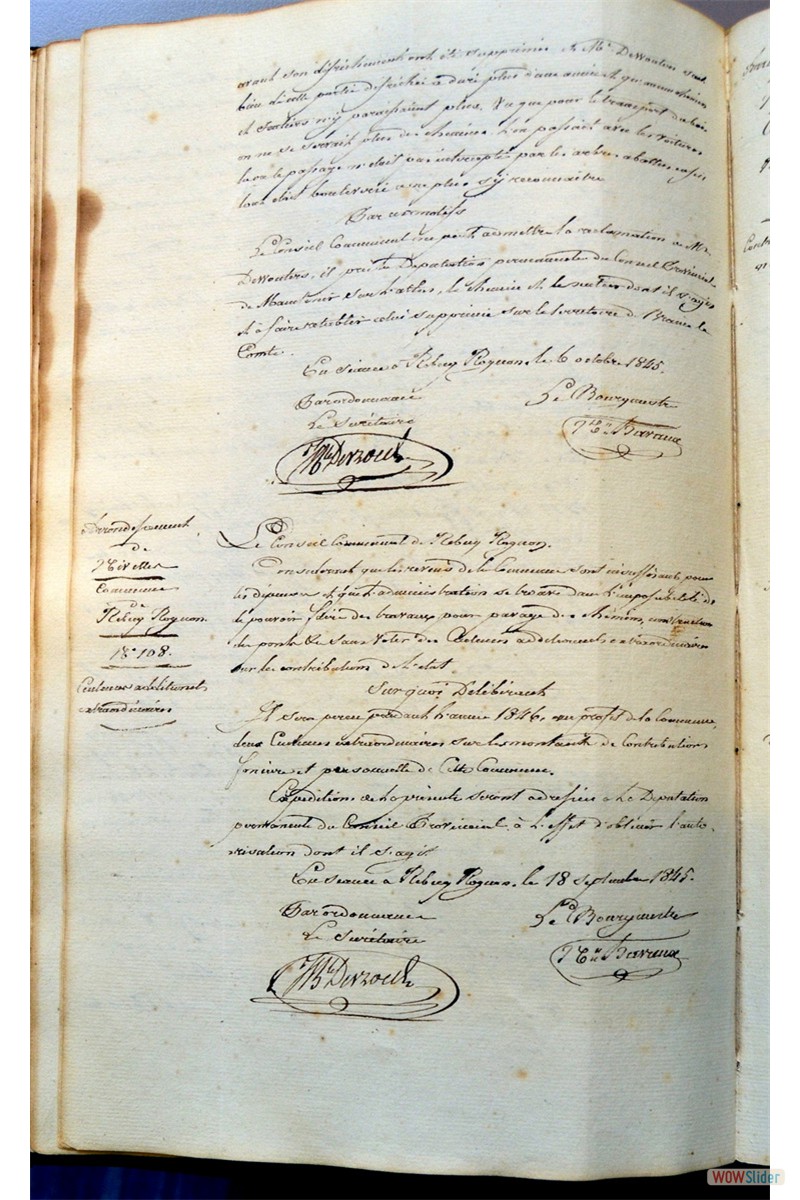 avant son défrichement ont été supprimés et Mr Dewouters
de cette partie défrichée a duré plus d'une année et qu'aucun chemin
et sentiers n'y paraissaient plus. Vu que pour le transport du bois
on ne se servait plus de chemins. L'on passait avec les voitures
là où le passage n'était pas intercepté par les arbres abattus
tout était bouleversé à ne plus s'y reconnaître
Par ces motifs
Le Conseil Communal ne peut admettre la réclamation de Mr
Dewouters, il prie la Députation permanente du Conseil Provincial
de Maintenir sur l'atlas, le chemin et le sentier dont il s'agit
et à faire rétablir celui supprimé sur le territoire de Braine le
Comte.
En séance à Rebecq Rognon, le 6 octobre 1845.
Par ordonnance
Le Bourgmestre
Le Secrétaire
Derzoeck
Arrondissement
de
Nivelles
Commune
de
Rebecq Rognon.
N° 108.
Centimes additionels
extraordinaires
Le Conseil Communal de Rebecq Rognon.
Considérant que les revenus de la Commune sont insuffisants pour
les dépenses et que l'administration se trouve dans l'impossibilité de
pouvoir faire des travaux pour pavage de chemins, construction
de ponts &c sans voter des Centimes additionnels extraordinaires
sur les contributions de l'état
Sur quoi Délibérant
Il sera perçu pendant l'année 1846, au profit de la Commune,
deux Centimes extraordinaires sur les montants de Contributions
foncière et personnelle de Cette Commune.
Expéditions de la présente seront adressées à la Députation
permanente du Conseil Provincial à l'effet d'obtenir l'auto-
risation dont il s'agit.
En séance à Rebecq Rognon, le 18 septembre 1845.
Par ordonnance
Le Bourgmestre
Le Secrétaire
Derzoeck
WOWSlider